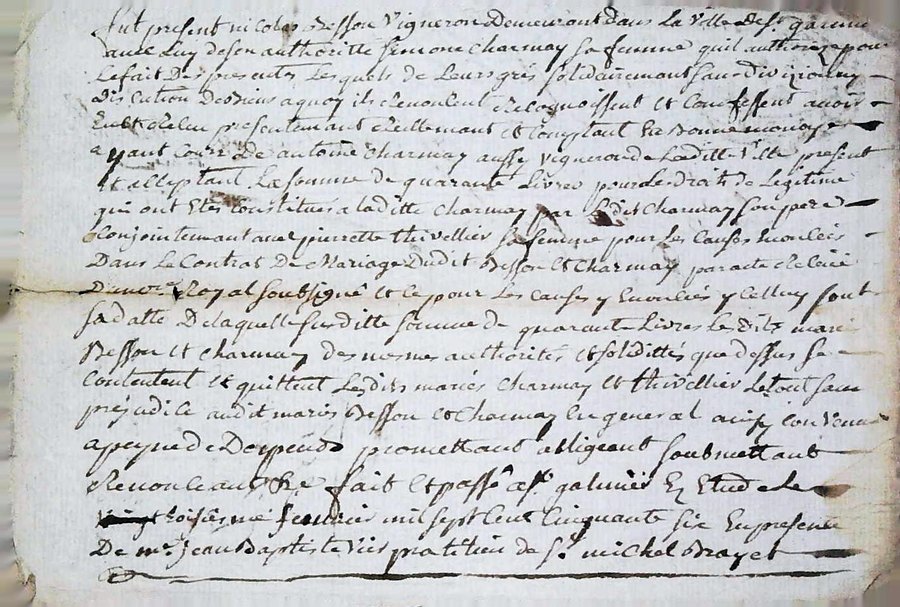 fut present nicolas Besson Vigneron demeurant dans La Ville de st. galmier
avec Luy de son authoritté Simone Charmay sa femme quil authorize pour
Le fait Des presentes Lesquels de Leurs grés solidairemant sans divizion ny
discution de biens a quoy ils Renoncent Recognoissent Et Confessent avoir
Eu et Recu presentemant Reellemant Et Comptant En bonne monoye
ayant Cours De antoine Charmay aussy Vigneron de Laditte Ville present
Et acceptant La somme de quarante Livres pour Les droits de Legitime
qui ont Etés Constitués a laditte Charmay par Ledit Charmay son pere
Conjointemant avec pierrette thivellier sa femme pour Les Causes Enoncées
Dans Le Contrat De Mariage Dudit Besson Et Charmay par acte Receu
Royal soubsigné Et Ce pour Les Causes y Enoncées y Celluy sous
sa datte De laquelle susditte somme de quarante Livres Les dits mariés
Besson Et Charmay des mesmes authorités Et solidittés que dessus se
Contentent Et quittent Lesdits mariés Charmay Et thivellier Le tout sans
préjudice audit mariés Besson Et Charmay En general ainsy Convenu
a peyne de Despends promettant obligeant soubmettant
Renonceant &c fait Et passé a st. galmier En Etude Le
troisiesme fevrier mil sept Cent Cinquante six En presence
De mre Jean Baptiste praticien de st. michel